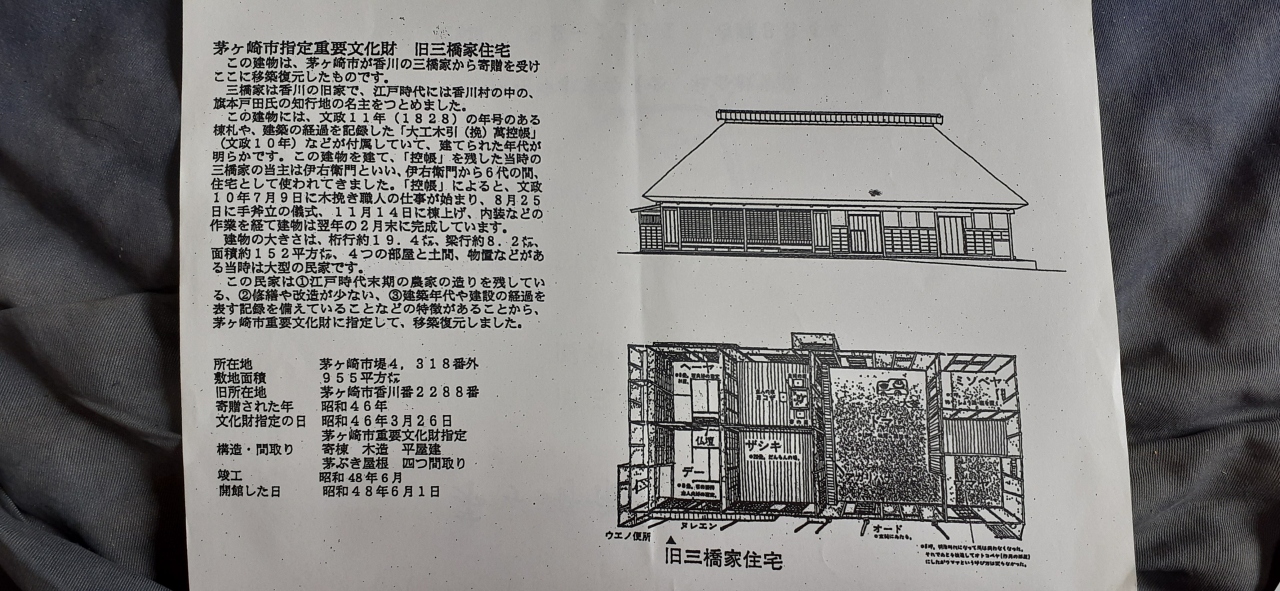 茅ヶ崎市指定重要文化財　旧三橋家住宅
この建物は、茅ヶ崎市が香川の三橋家から寄贈を受け
ここに移築復元したものです。
三橋家は香川の旧家で、江戸時代には香川村の中の、
旗本戸田氏の知行地の名主をつとめました。
この建物には、文政１１年（１８２８）の年号のある
棟札や、建築の経過を記録した「大工木引（挽）萬控帳」
（文政１０年）などが付属していて、建てられた年代が
明らかです。この建物を建て、「控帳」を残した当時の
三橋家の当主は伊右衛門といい、伊右衛門から６代の間、
住宅として使われてきました。「控帳」によると、文政
１０年７月９日に木挽き職人の仕事が始まり、８月２５
日に手斧立の儀式、１１月１４日に棟上げ、内装などの
作業を経て建物は翌年の２月末に完成しています。
建物の大きさは、桁行約１９．４㍍、梁行約８．２㍍、
面積約１５２平方㍍、４つの部屋と土間、物置などがあ
る当時は大型の民家です。
この民家は①江戸時代末期の農家の造りを残してい
る、②修繕や改造が少ない、③建築年代や建設の経過を
表す記録を備えていることなどの特徴があることから、
茅ヶ崎市重要文化財に指定して、移築復元しました。
所在地　茅ヶ崎市堤４，３１８番外
敷地面積　９５５平方㍍
旧所在地　茅ヶ崎市香川番２２８８番
寄贈された年　昭和４６年
文化財指定の日　昭和４６年３月２６日
茅ヶ崎市重要文化財指定
構造・間取り　寄棟　木造　平屋建
茅ぶき屋根　四つ間取り
竣工　昭和48年６月
開館した日　昭和４８年６月１日
ヘーヤ
ミソベヤ
仏壇
ザシキ
デー
ヌレエン
オード
ウエノ便所
▲
旧三橋家住宅